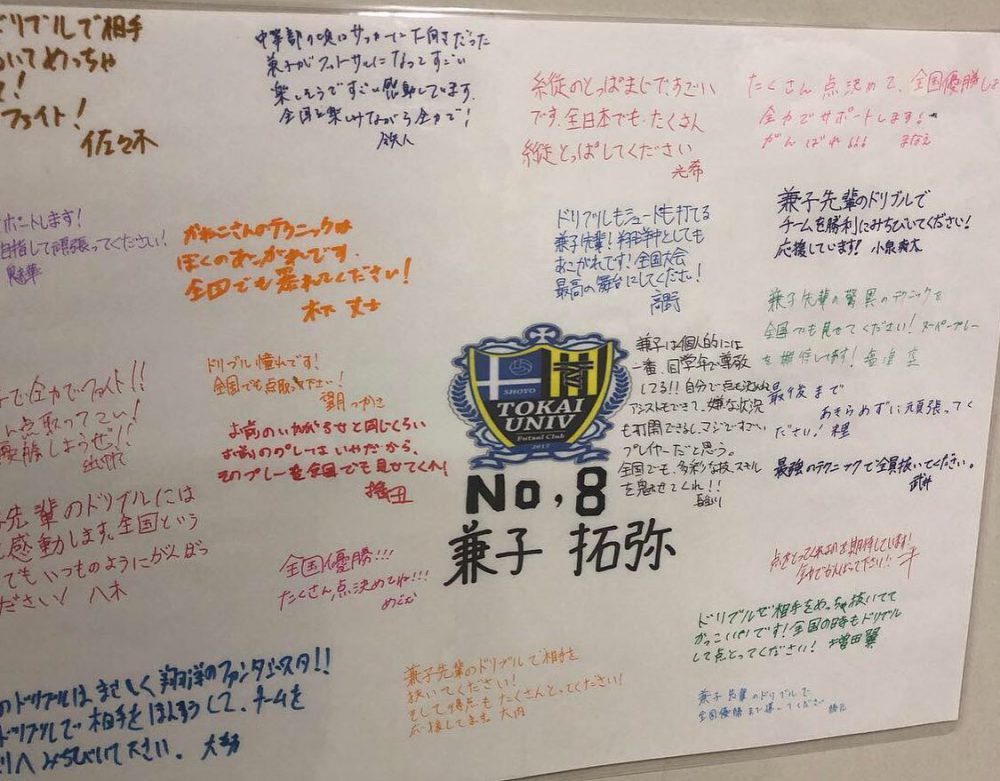 ドリブルで相手
いてめっちゃ
！
ファイト！
佐々木
中等部の頃はサッカーに下向きだった
兼子がフットサルになってすごい
楽しそうですごい感動しています。
全国を楽しみながら全力で！
鉄人
縦のとっぱまじですごい
です。全日本でもたくさん
縦とっぱしてください
光希
たくさん点決めて、全国優勝しよ
全力でサポートします！
がんばれ
まなえ
ポートします！
目指して頑張ってください！
かねこさんのテクニックは
ぼくのあこがれです。
全国でも暴れてください！
木下 丈士
ドリブルもシュートも打てる
兼子先輩！翔洋中としても
あこがれです！全国大会
最高の舞台にしてください！
高野
兼子先輩のドリブルで
チームを勝利にみちびいてください！
応援しています！ 小泉爽太
兼子先輩の驚異のテクニックを
全国でも見せてください！スーパープレー
を期待してます！
で全力でファイト！！
ん点取ってこい！
優勝しようぜ！！
ドリブル憧れです！
全国でも点取って下さい！
望月つかさ
お前のいかがらせと同じくらい
お前のプレーはいやだから、
そのプレーを全国でも見せてくれ！
増田
SHOYO
TOKAI
UNIV
Futsal Club
2017
No,8
兼子 拓弥
兼子は個人的には
一番、同学年で尊敬
してる！！自分で点も決めれ
アシストもできて、嫌な状況
も打開できるし、マジですごい
プレイヤーだと思う。
全国でも、多彩な技、スキル
を魅せてくれ！！
長谷川
最後まで
あきらめずに頑張ってく
ださい！
最強のテクニックで全員抜いてください。
武井
先輩のドリブルには
感動します。全国という
でもいつものようにがんばっ
ださい！ 八木
全国優勝！！！
たくさん点決めてね！！！
めぐむ
点をとってくれるのを期待しています！
全力でがんばって下さい！！
ドリブルで相手をめっちゃ抜いてて
かっこいいです！全国の時もドリブル
して点とってください！ 増田翼
のドリブルは、まさしく翔洋のファンタジスタ！！
ドリブルで相手をほんろうして、チームを
りへみちびいて下さい。
兼子先輩のドリブルで相手を
抜いてください！
そして得点もたくさんとってください！
応援してます 大内
兼子先輩のドリブルで
全国優勝まで導いてください